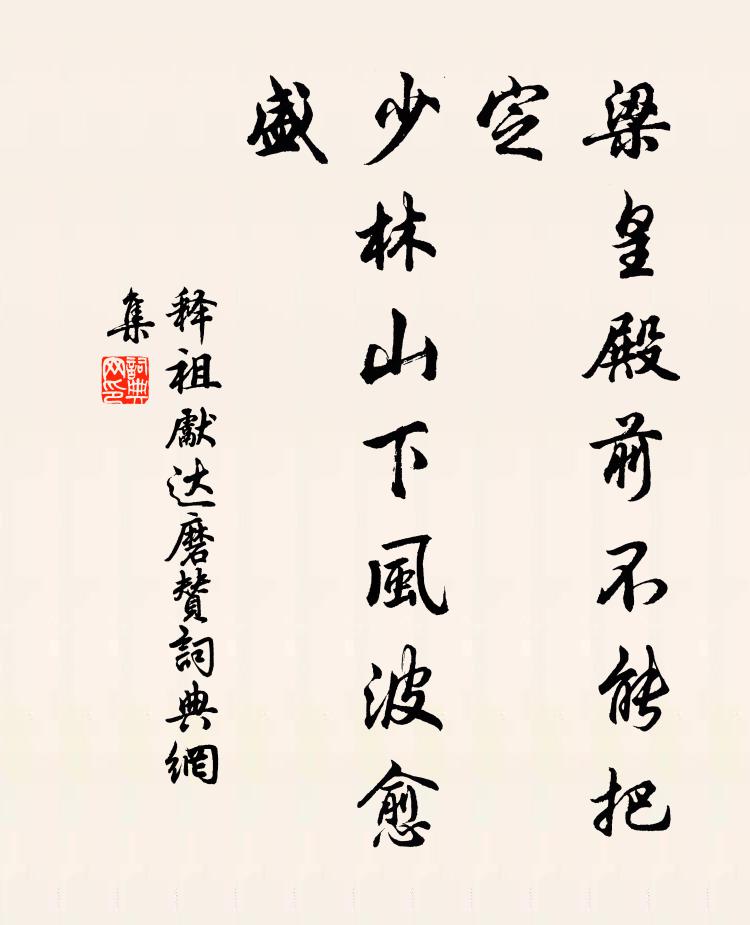 梁皇殿前不能把
定
少林山下風波愈
盛
释祖獻达磨赞詞典網
集
詞典
网印